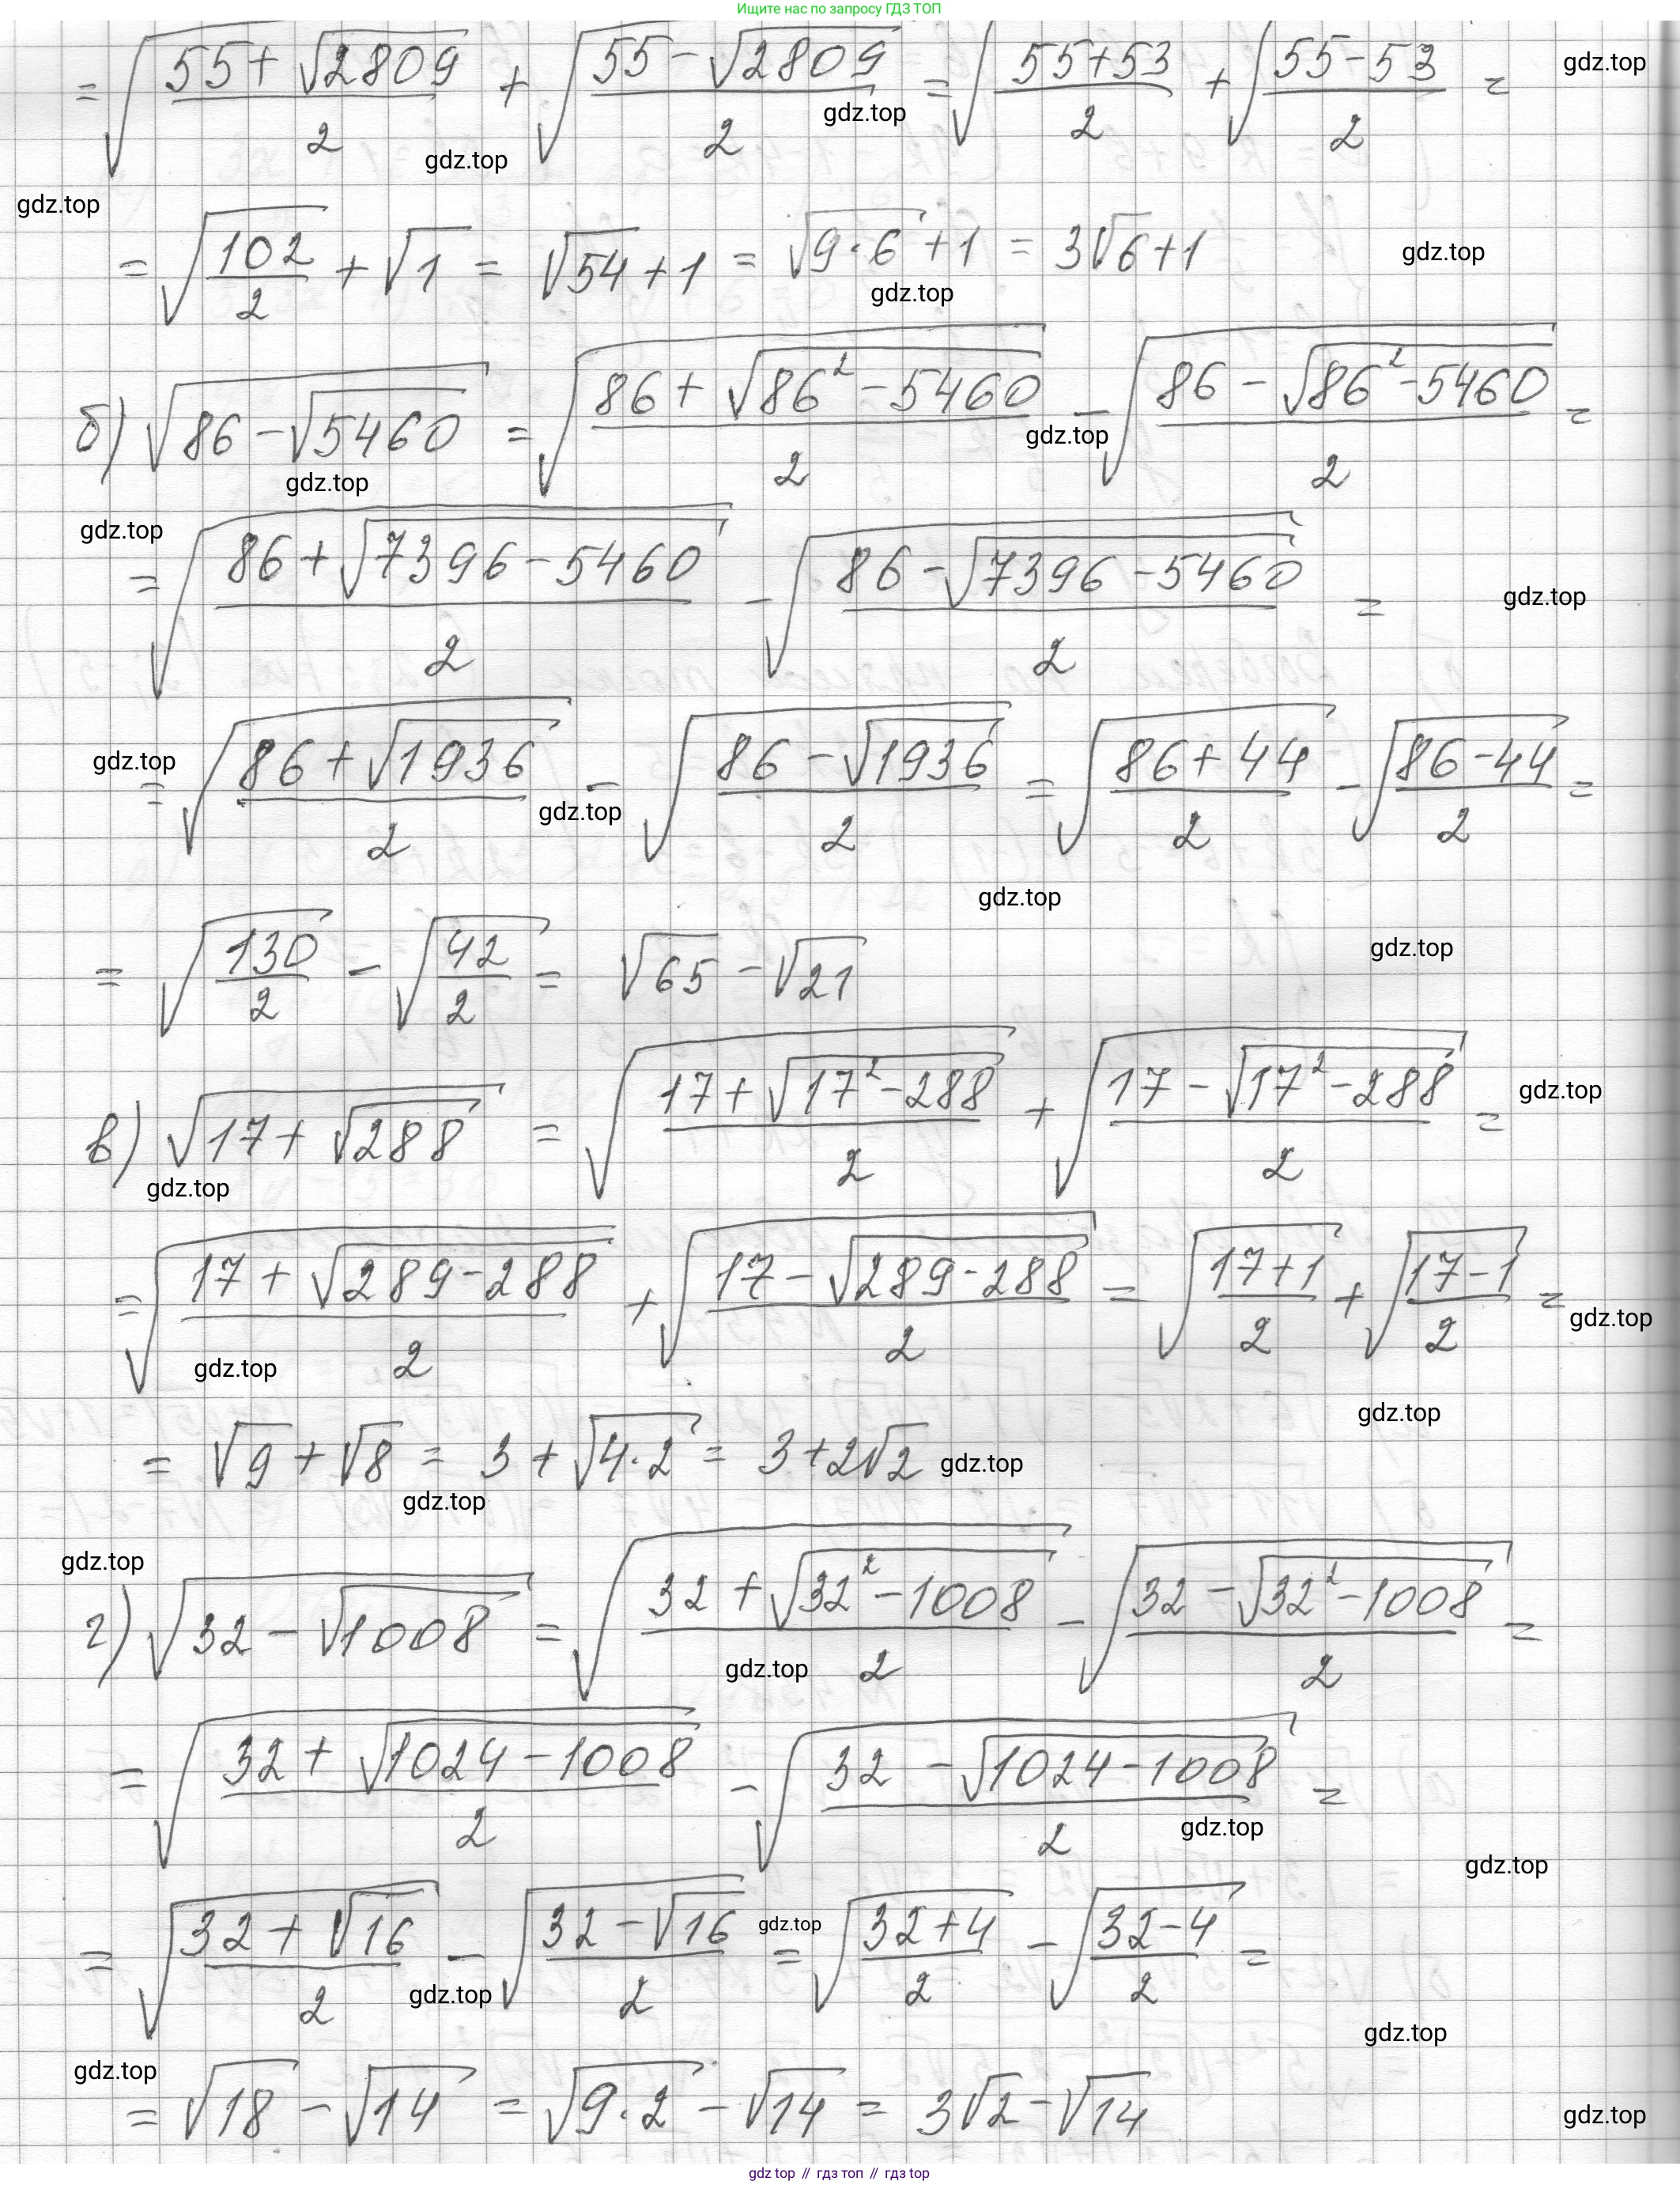 Ищите нас по запросу ГДЗ ТОП
= √((55 + √2809)/2) + √((55 - √2809)/2) = √((55+53)/2) + √((55-53)/2) =
gdz.top
gdz.top
gdz.top
gdz.top
= √(102/2) + √1 = √54 + 1 = √(9·6) + 1 = 3√6 + 1
gdz.top
gdz.top
б) √(86 - √5460) = √((86 + √(86² - 5460))/2) - √((86 - √(86² - 5460))/2) =
gdz.top
gdz.top
gdz.top
= √((86 + √(7396 - 5460))/2) - √((86 - √(7396 - 5460))/2) =
gdz.top
= √((86 + √1936)/2) - √((86 - √1936)/2) = √((86 + 44)/2) - √((86 - 44)/2) =
gdz.top
gdz.top
gdz.top
= √(130/2) - √(42/2) = √65 - √21
gdz.top
в) √(17 + √288) = √((17 + √(17² - 288))/2) + √((17 - √(17² - 288))/2) =
gdz.top
gdz.top
= √((17 + √(289 - 288))/2) + √((17 - √(289 - 288))/2) = √((17+1)/2) + √((17-1)/2) =
gdz.top
gdz.top
gdz.top
= √9 + √8 = 3 + √(4·2) = 3 + 2√2
gdz.top
gdz.top
gdz.top
г) √(32 - √1008) = √((32 + √(32² - 1008))/2) - √((32 - √(32² - 1008))/2) =
gdz.top
= √((32 + √(1024 - 1008))/2) - √((32 - √(1024 - 1008))/2) =
gdz.top
gdz.top
= √((32 + √16)/2) - √((32 - √16)/2) = √((32+4)/2) - √((32-4)/2) =
gdz.top
gdz.top
gdz.top
gdz.top
= √18 - √14 = √(9·2) - √14 = 3√2 - √14
gdz.top
gdz top // гдз топ // gdz top